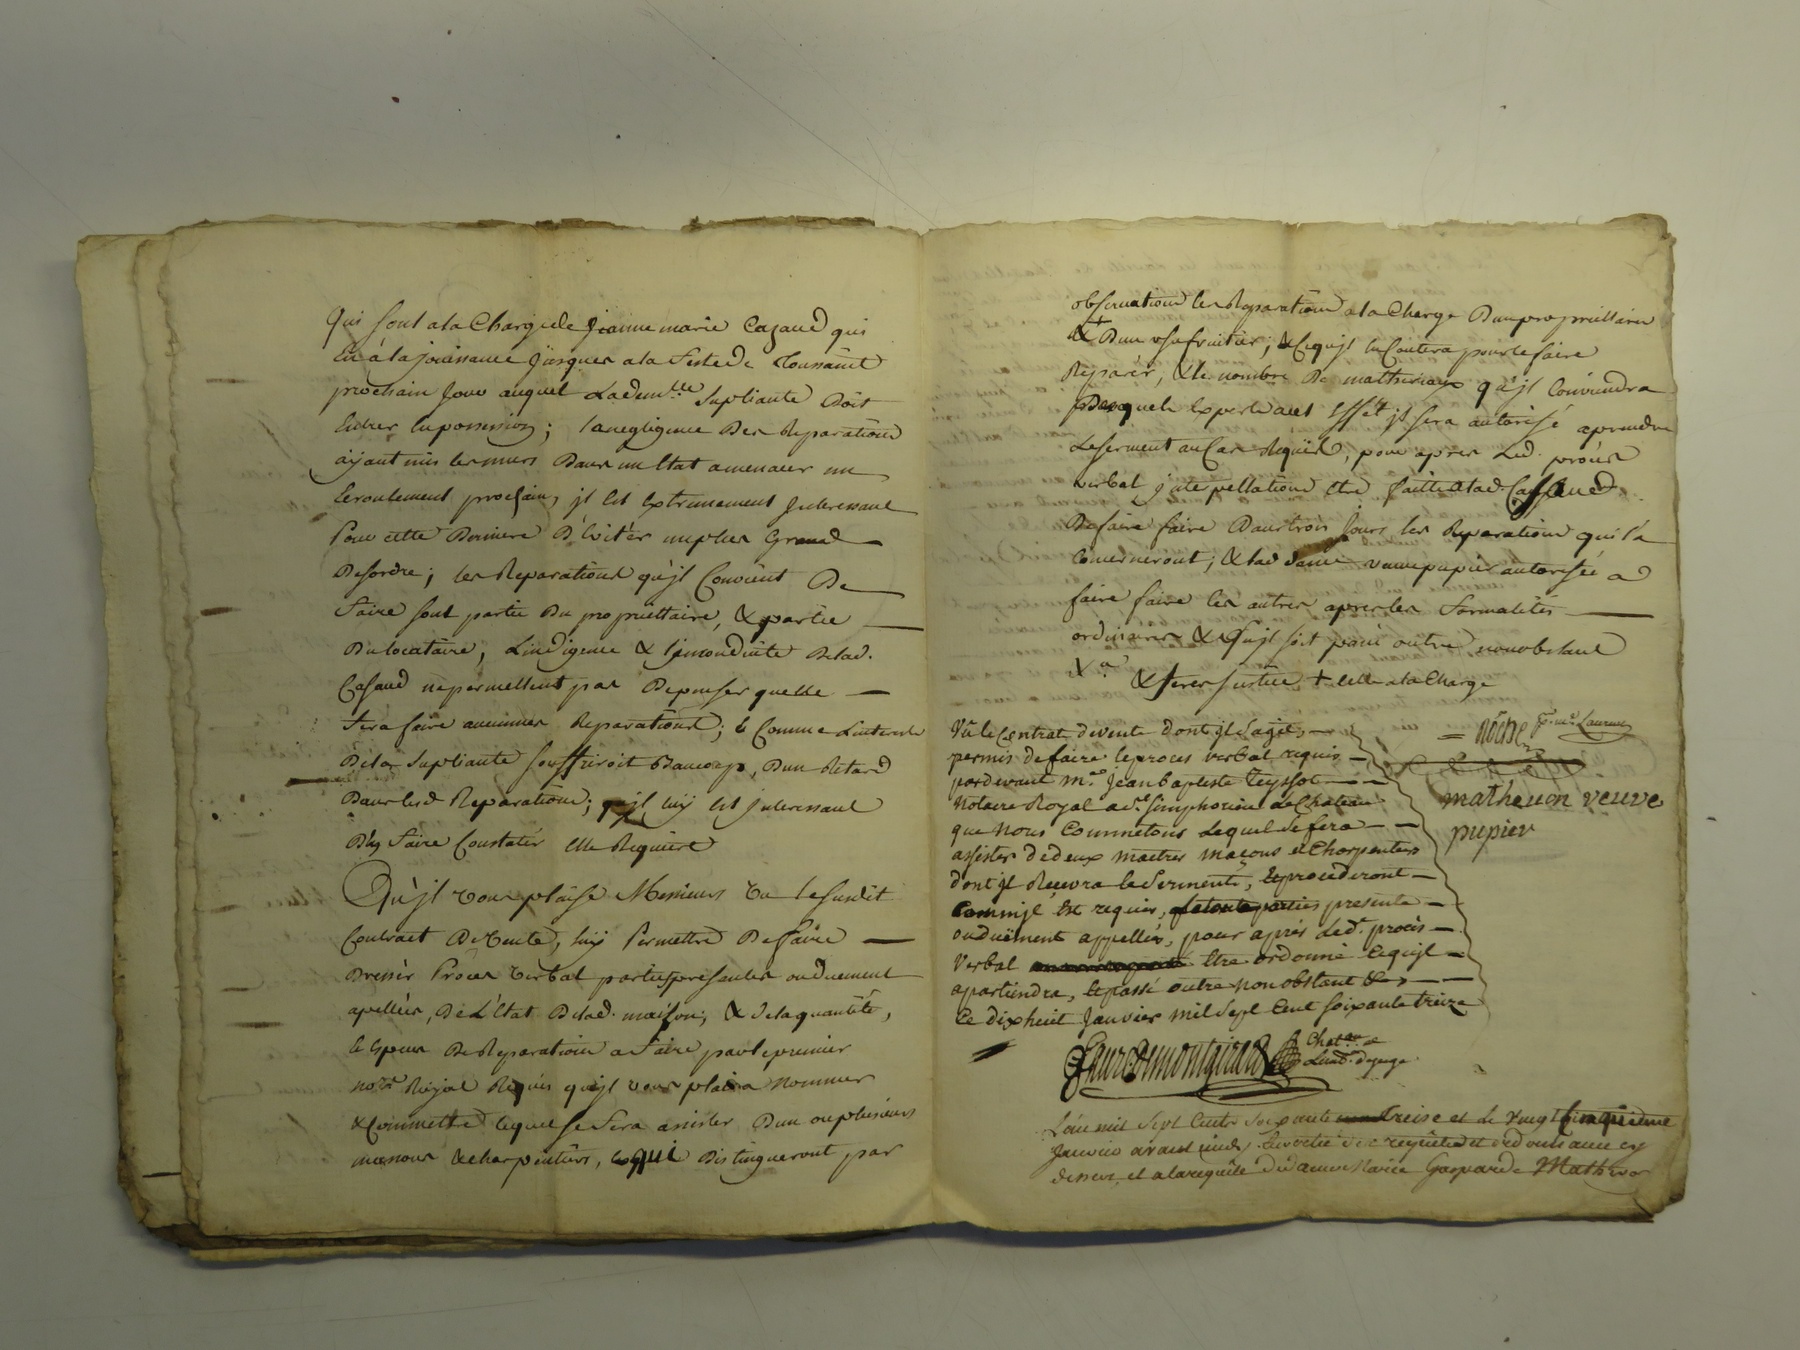 Qui sont a la Charge de Jeanne marie Cazaud qui
En á la jouissance Jusques a la feste de Toussaint
prochain Jour auquel Lad. Supliante Doit
Entrer En possession; la negligence Des Reparations
ayant mis les murs Dans un Etat a menacer un
Ecroulement prochain, jl Est Extremement Interessant
Pour cette Derniere D'Evitér un plus Grand
Desordre; les Reparations qu'jl Convient De
faire sont partie Du propriettaire, & partie
Du locataire, L'indigence & De lad.
Casaud ne permettent pas De penser quelle
fera faire aucunnes Reparations; & Comme L'interest
De la Supliante souffriroit Beaucoup, D'un Retard
Dans lesd. Reparations; qu'jl luy Est jnteressant
D'y faire Constatér Elle Requiert
Qu'jl vous plaise Messieurs vu le susdit
Contract De vente, luy Permettre De faire
Dressér Procès verbal parties presentes ou duement
apellées, De L'Etat De lad. maison, & de la quantité,
& Espece De Reparations a faire par le premier
no.re Royal Requis qu'jl vous plaira nommer
& Commettre lequel se fera assister D'un ou plusieurs
massons & charpentiers, lequel Distingueront par
observations les Reparations a la Charge D'un propriettaire
& D'un usufruitier; & Ce qu'jl En Coutera pour le faire
Réparér, & le nombre De matheriaux qu'jl Conviendra
Expert aud Effét jl sera autorisé aprendre
Le serment au Cas Requis, pour apres Led. procès
verbal jnterpellations Etre faitte a lad. Casaud
De faire faire Dans trois Jours les Reparations qui la
Concerneront; & lad dame veuve pupier autorisée a
faire faire les autres apres les formalités
ordinaires & qu'jl soit passé outre nonobstant
& a
& ferez Justice + celle a la Charge
= Rôche
Vû le Contrat de vente dont jl s'agit,
permis de faire le proces verbal requis
pardevant m.e Jean baptiste teyssot
Notaire Royal a s.t simphorien de Chateau
que Nous Commetons Lequel se fera
assister de deux maitres maçons et Charpentiers
dont jl Recevra le serment, & procederont
Comm'jl Est requis, parties presente
ou duëment appellés, pour aprés led.t procès
Verbal Etre ordonné ce qu'jl
apartiendra, & passé outre non obstant &c,
Ce dixhuit Janvier mil sept Cent soixante treize
matheuon veuve
pupier
Faure De montgirard
L'an mil sept Cents soixante treise et le vingt Cinquieme
Janvier avant midy, En vertu des requête et ordonnance cy
dessus, et a la requête de dame Marie Gasparde Mathevon